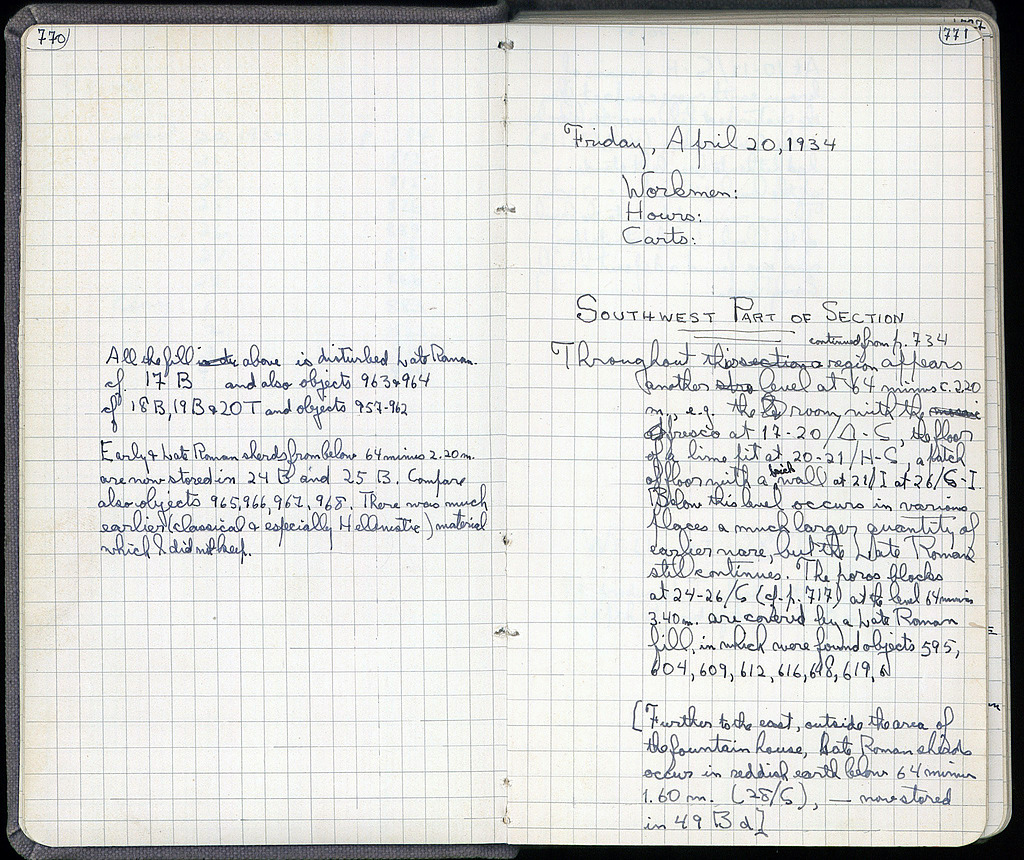 770
All the fill above is disturbed Late Roman.
cf. 17 B and also objects 963 & 964
cf 18 B, 19 B & 20 T and objects 957-962
Early & Late Roman sherds from below 64 minus 2.20 m.
are now stored in 24 B and 25 B. Compare
also objects 965, 966, 967, 968. There was much
earlier (classical & especially Hellenistic) material
which I did not keep.
771
Friday, April 20, 1934
Workmen:
Hours:
Carts:
SOUTHWEST PART OF SECTION
continued from p. 734
Throughout this section a region appears
another level at 64 minus c. 2.20
m., e.g. the room with the
fresco at 17-20/Δ-S, the floor
of a lime pit at 20-21/H-S, a patch
of floor with a brick wall at 21/I at 26/S-I.
Below this level occurs in various
places a much larger quantity of
earlier ware, but the Late Roman
still continues. The poros blocks
at 24-26/S (cf. p. 717) at the level 64 minus
3.40 m. are covered by a Late Roman
fill, in which were found objects 595,
604, 609, 612, 616, 618, 619,
[Further to the east, outside the area of
the fountain house, Late Roman sherds
occur in reddish earth below 64 minus
1.60 m. (28/S), — now stored
in 49 B d]